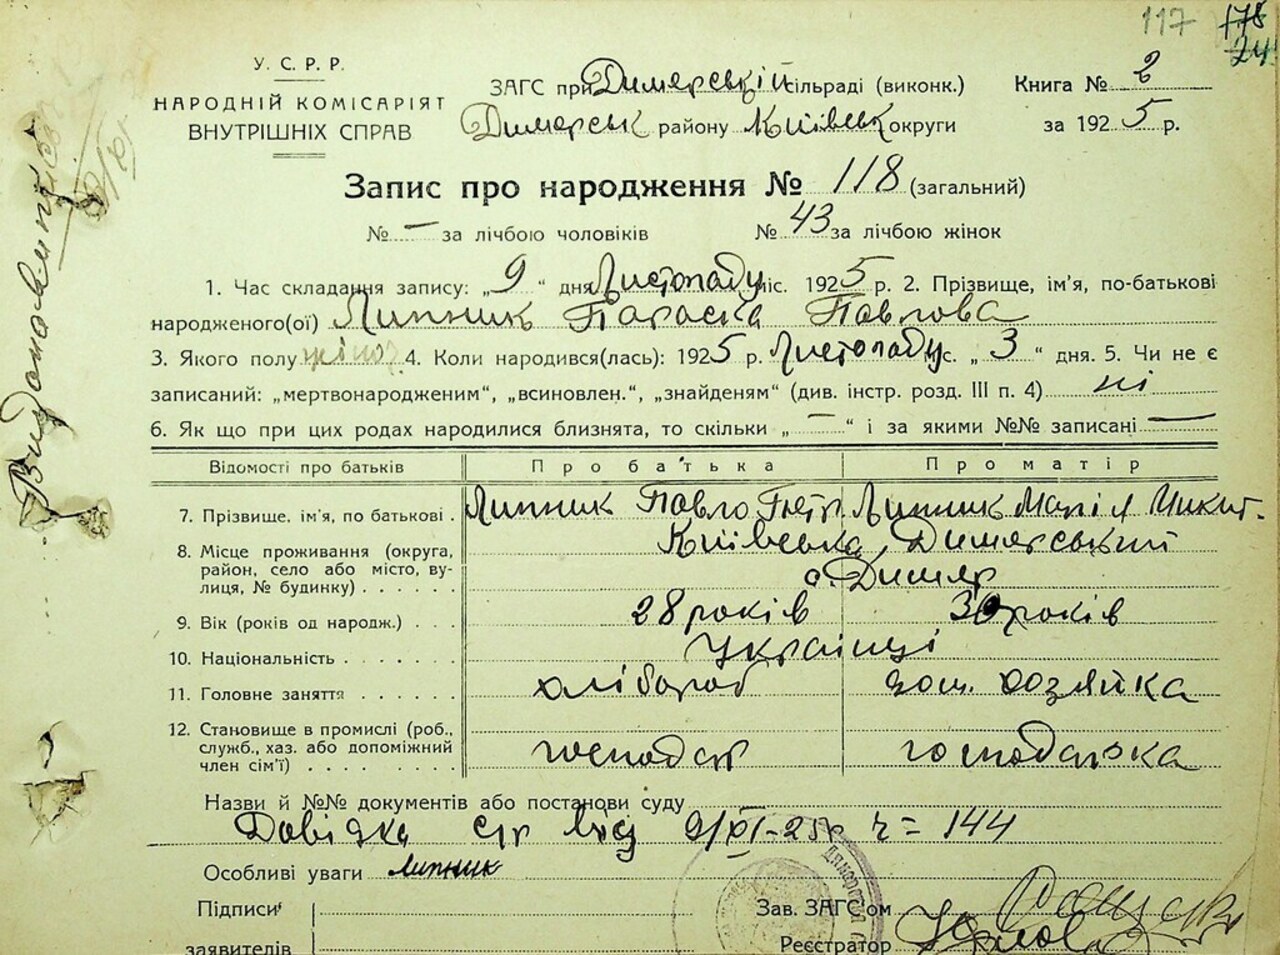 117 178
24
У. С. Р. Р.
НАРОДНІЙ КОМІСАРІЯТ
ВНУТРІШНІХ СПРАВ
ЗАГС при Димерській сільраді (виконк.) Книга № 2
Димерськ району Київськ округи за 1925 р.
Запис про народження № 118 (загальний)
№ — за лічбою чоловіків № 43 за лічбою жінок
1. Час складання запису: „9“ дня Листопаду міс. 1925 р. 2. Прізвище, ім'я, по-батькові
народженого(ої) Липник Параска Павлова
3. Якого полу жіноч. 4. Коли народився(лась): 1925 р. Листопаду с. „3“ дня. 5. Чи не є
записаний: „мертвонародженим“, „всиновлен.“, „знайденям“ (див. інстр. розд. III п. 4) ні
6. Як що при цих родах народилися близнята, то скільки „—“ і за якими №№ записані —
Відомості про батьків Про батька Про матір
7. Прізвище, ім'я, по батькові . Липник Павло Петр. Липник Марія Микит.
8. Місце проживання (округа, Київська, Димерський
район, село або місто, ву- с. Димер
лиця, № будинку) . . . . . .
9. Вік (років од народж.) . . . 28 років 30 років
10. Національність . . . . . . . Українці
11. Головне заняття . . . . . . хлібороб дом. хозяйка
12. Становище в промислі (роб.,
служб., хаз. або допоміжний господар господарка
член сім'ї) . . . . . . . . .
Назви й №№ документів або постанови суду
Довідка 9/XI-25р ч= 144
Особливі уваги Липник
Підписи Зав. ЗАГС'ом
заявителів Реєстратор